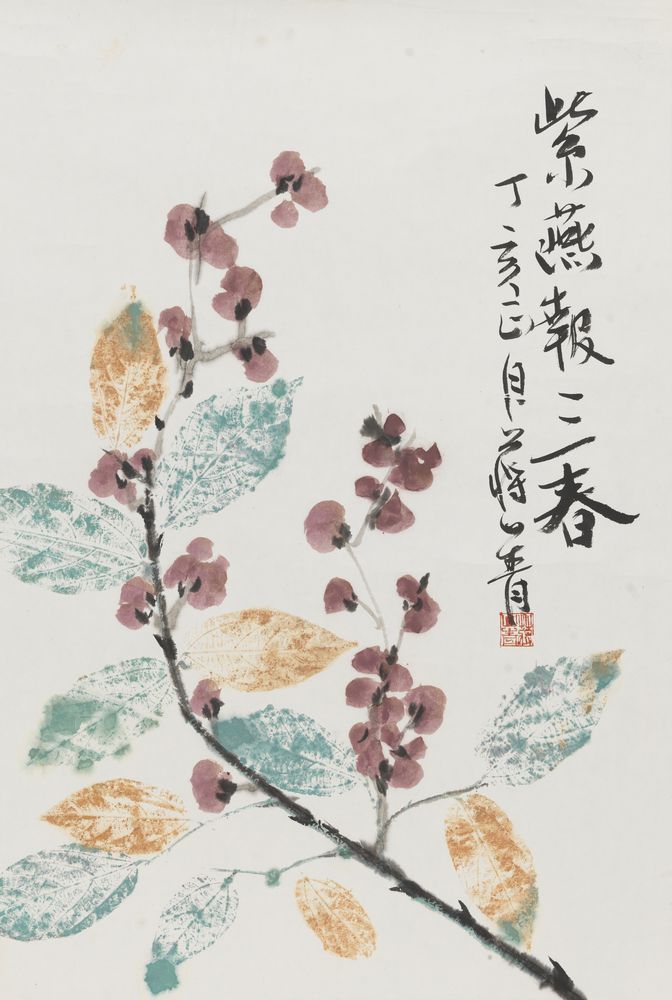 紫燕報三春
丁亥正月蔣山青